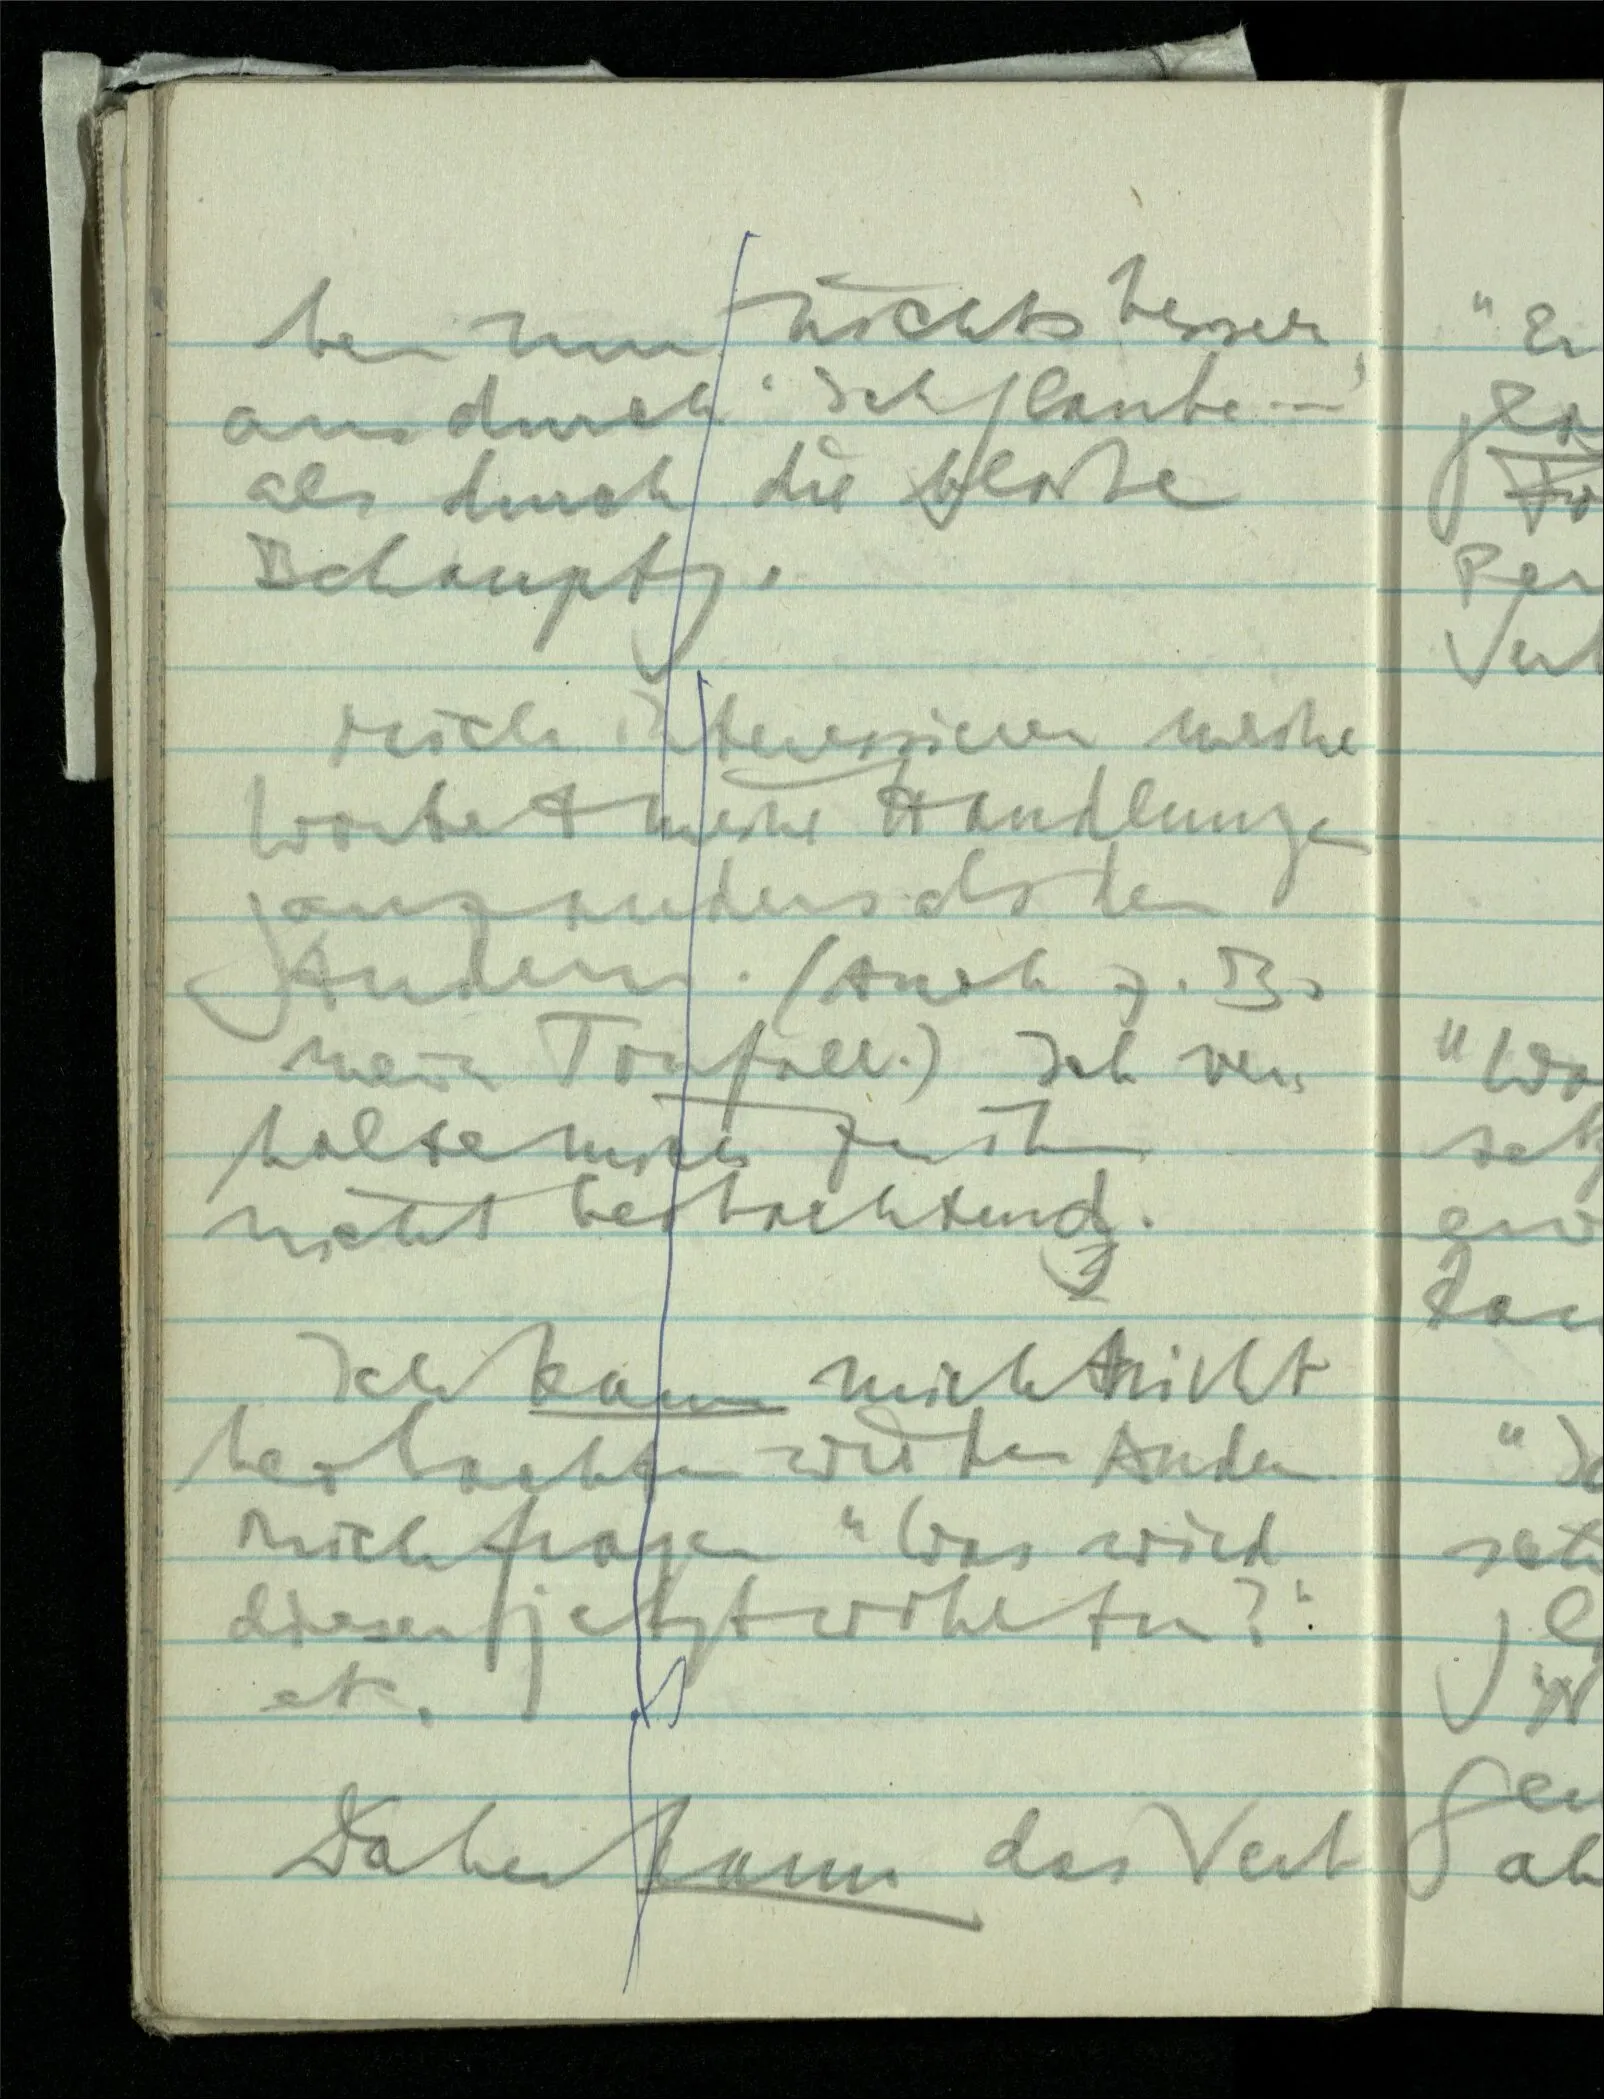 ben nun nichts besser
aus durch 'Ich glaube —'
als durch die bloße
Behauptg.
Mich interessieren meine
Worte & meine Handlungen
ganz anders als den
Andern. (Auch z.B.
mein Tonfall.) Ich ver-
halte mich zu ihnen
nicht beobachtend.
Ich kann mich nicht
beobachten wie den Andern
mich fragen "Was wird
dieser jetzt wohl tun?"
etc.
Daher kann das Verb
"Er
Per
Verb
"Wa
"Ic